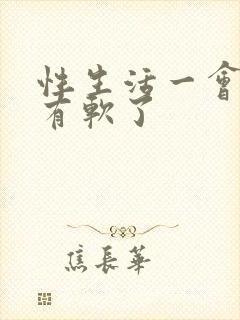 性生活一會
有軟了
焦長華